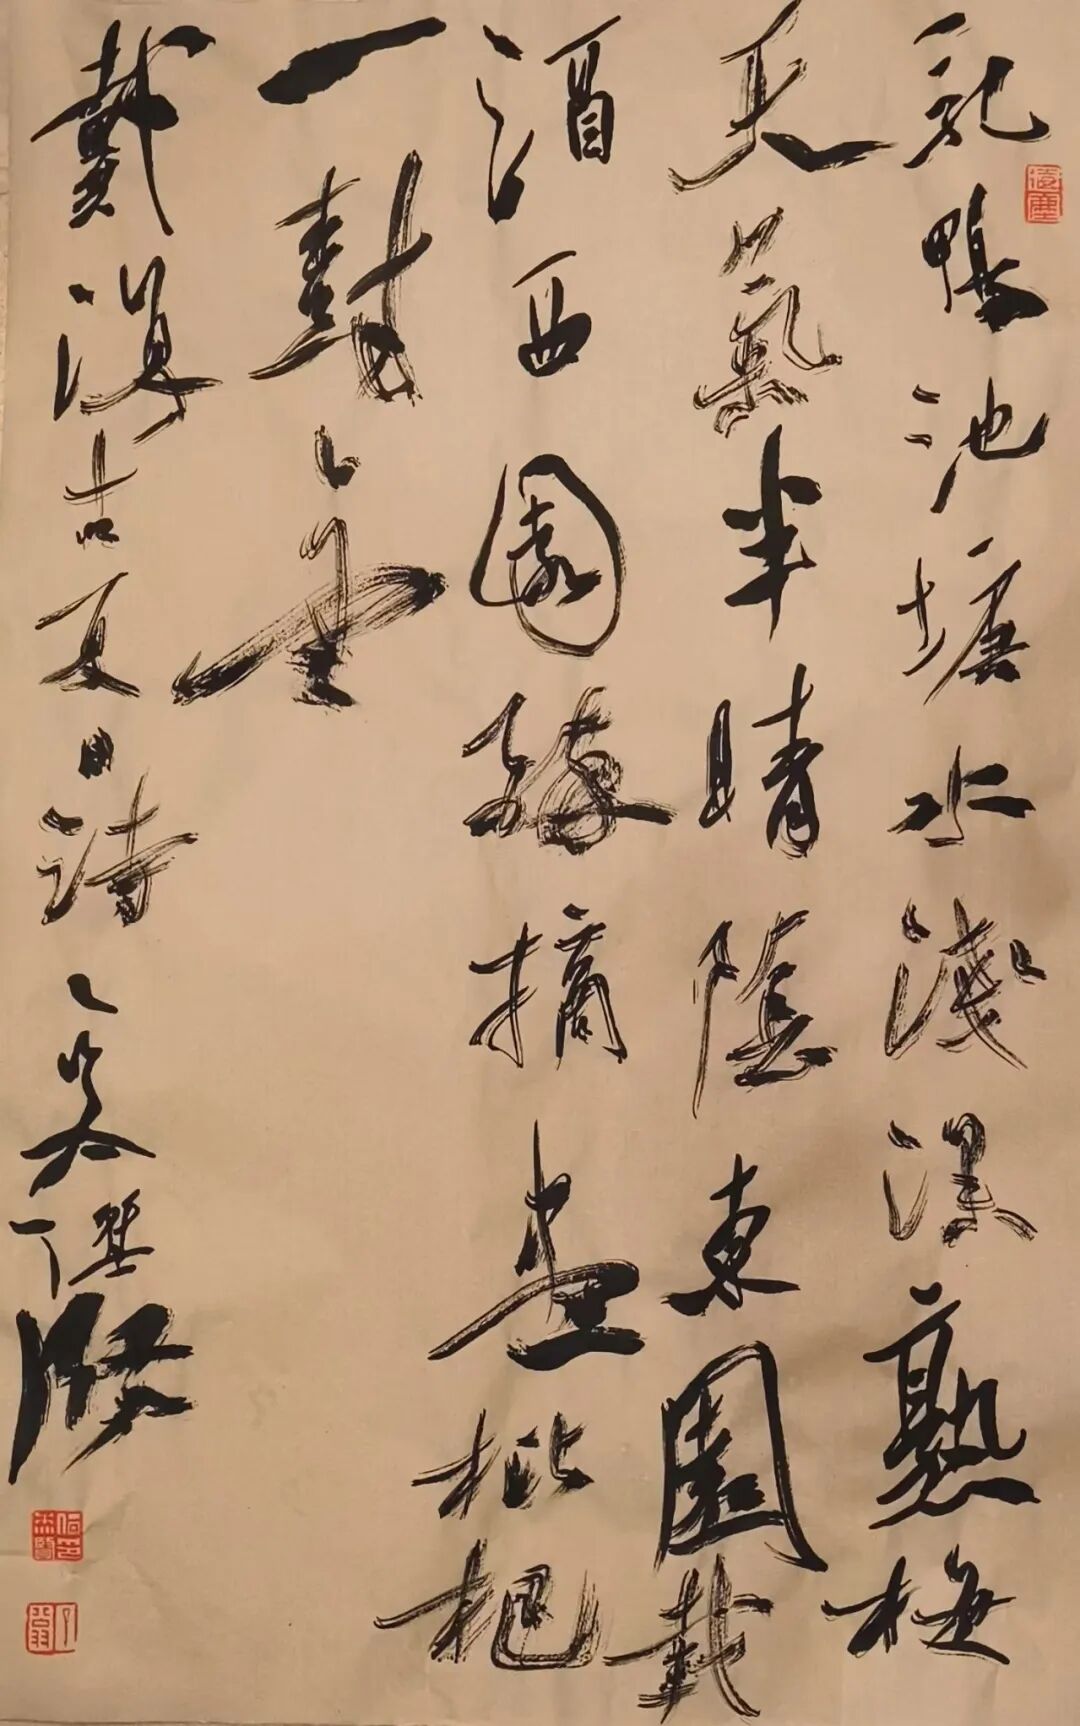 乳鴨池塘水淺深熟梅
天氣半晴陰東園載
酒西園醉摘盡枇杷
一樹金
戴復古夏日詩